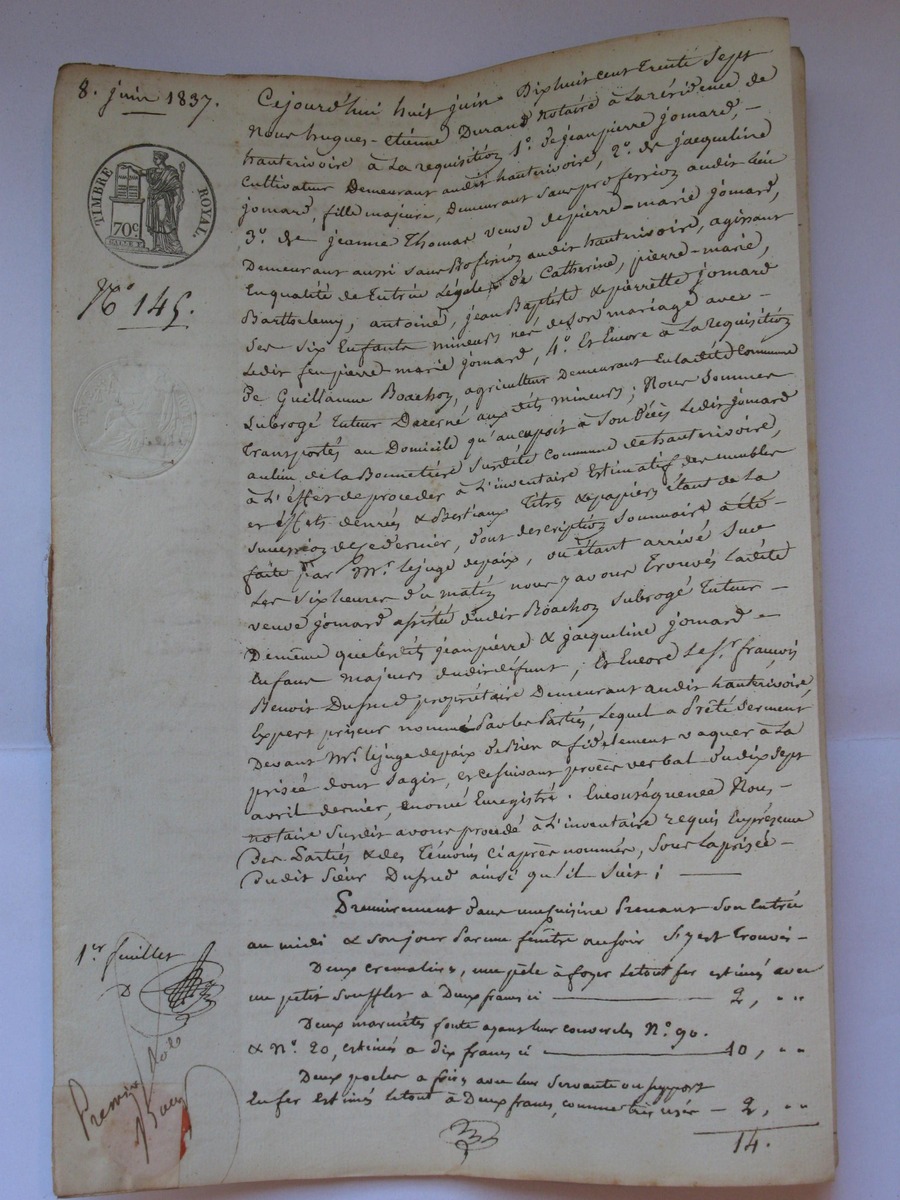 8. juin 1837.
TIMBRE ROYAL.
70c
No 145.
Cejourd'hui huit juin Dixhuit cent Trente Sept
Nous hugues-Etienne Durand Notaire à La résidence de
hauterivoire à La requisition 1o. de jean pierre jomard,-
Cultivateur Demeurant audit hauterivoire, 2o. de jacqueline
jomard, fille majeure, Demeurant sans profession audit lieu
3o. de jeanne Thomas veuve de pierre-marie jomard,
Demeurant aussi sans Profession audit hauterivoire, agissant
En qualité de Tutrice Légale de Catherine, pierre-marie,
Barthelemy, antoine, jean Baptiste & pierrette jomard
Ses six Enfants mineurs nés de son mariage avec-
Ledit feu pierre-marie jomard, 4o. Et Encore à La requisition
De Guillaume Boachon, agriculteur Demeurant En ladite Commune
Subrogé Tuteur Décerné aux dits mineurs; Nous Sommes
Transportés au Domicile qu'aucupoit à Son Décès Ledit jomard
au lieu de la Bonnetière Susdite Commune de hauterivoire,
à L'effet de proceder à L'inventaire Estimatif des meubles
et effets denrées & bestiaux Titres & papiers étant de La
succession de ce dernier, dont description Sommaire à été-
faite par Mr. le juge de paix, où étant arrivé Sur
Les six heures du matin nous y avons Trouvés Ladite
veuve jomard assistée dudit Boachon Subrogé Tuteur-
De même que lesdits jean pierre & jacqueline jomard-
Enfans majeurs dudit défunt; Et Encore Le Sr. françois
Benoit Dufrud propriétaire Demeurant audit hauterivoire,
Expert priseur nommé Par les Parties, Lequel a Prêté Serment
Devant Mr. le juge de paix de Bien & fidelement vaquer à La
prisée dont s'agit, et ce suivant procès verbal du dix Sept
avril dernier, Enregistré. En conséquence Nous-
notaire Susdit avons procedé à L'inventaire requis En présence
Des Parties & des Témoins ci après nommés, Sous la prisée-
Dudit Sieur Dufrud ainsi qu'il suit;
Premierement dans une Cuisine Prenant Son Entrée
au midi & son jour Par une fenêtre au Soir S'y est Trouvés-
Deux cremaliers, une pêle à foyer Le tout fer estimés avec
un petit Soufflet a Deux francs ci 2, "
Deux marmites fonte ayant leur couvercles No. 90.
& No. 20, estimés a dix francs ci 10, "
Deux poeles a frire avec leur Servante ou Support
En fer Estimés Le tout à Deux francs, comme très usés - 2, "
14.
1er feuillet
D
Premier Role